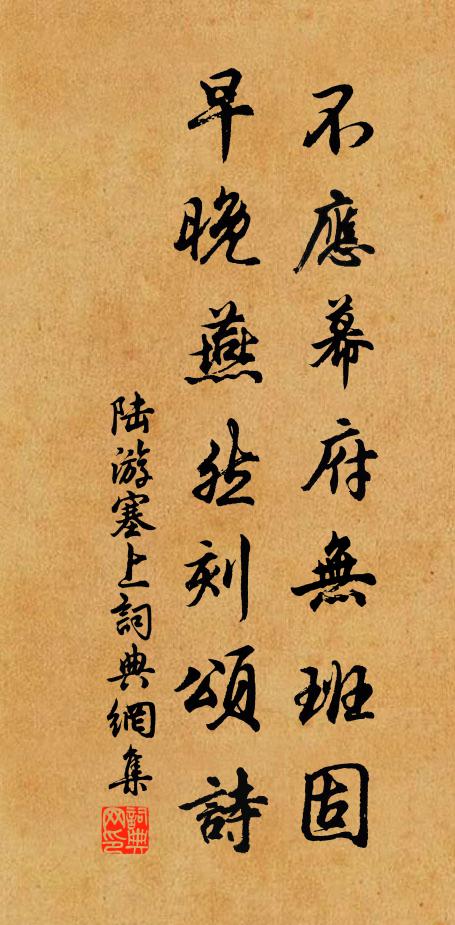 不應幕府無班固
早晚燕然刻頌詩
陆游塞上詞典網集
詞典网印